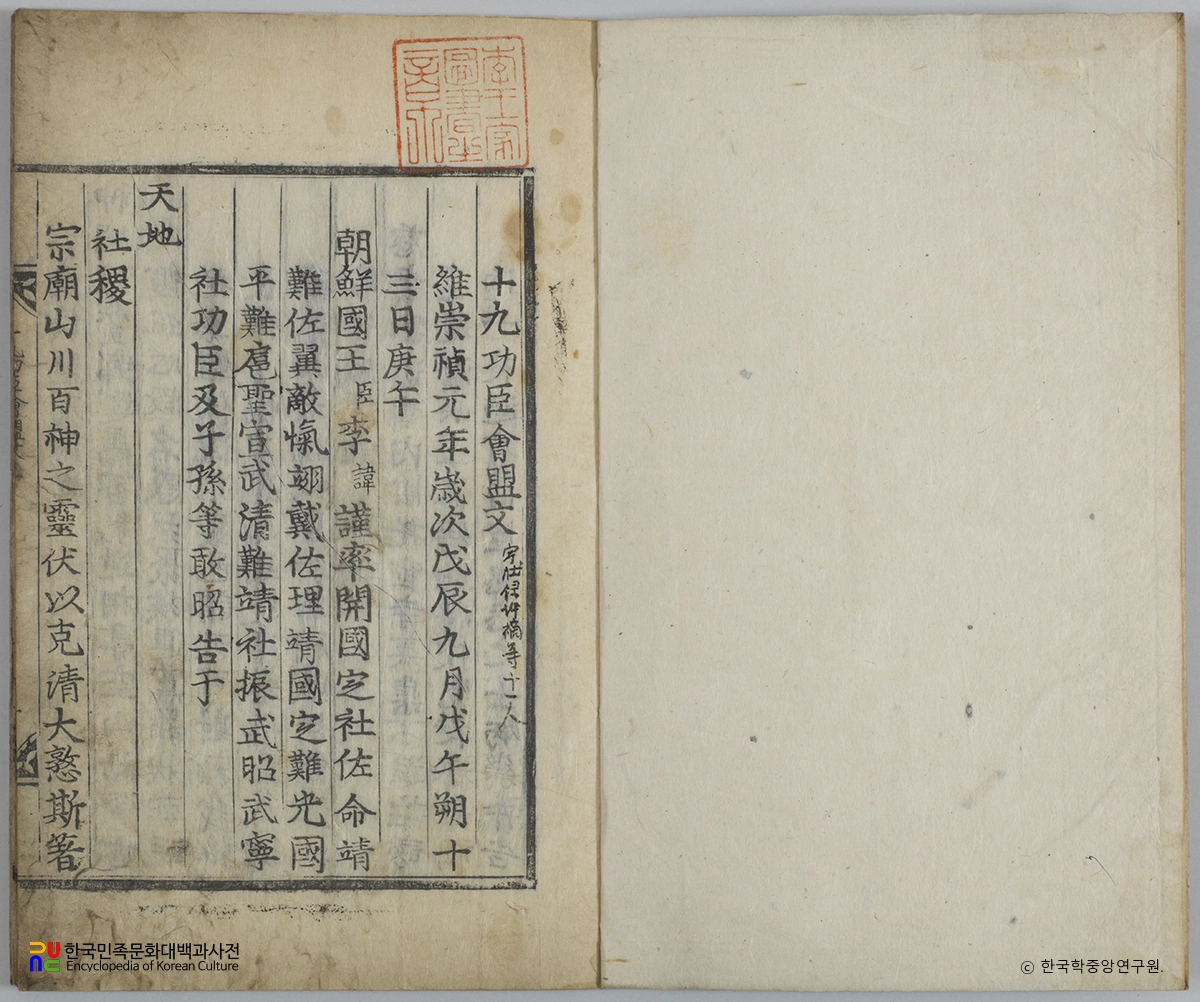 李王家
圖書
之章
十九功臣會盟文
維崇禎元年歲次戊辰九月戊午朔十
三日庚午
朝鮮國王臣李諱謹率開國定社佐命靖
難佐翼敵愾翊戴佐理靖國定難光國
平難扈聖宣武清難靖社振武昭武寧
社功臣及子孫等敢昭告于
天地
社稷
宗廟山川百神之靈伏以克清大憝斯著
한국민족문화대백과사전
Encyclopedia of Korean Culture
© 한국학중앙연구원.